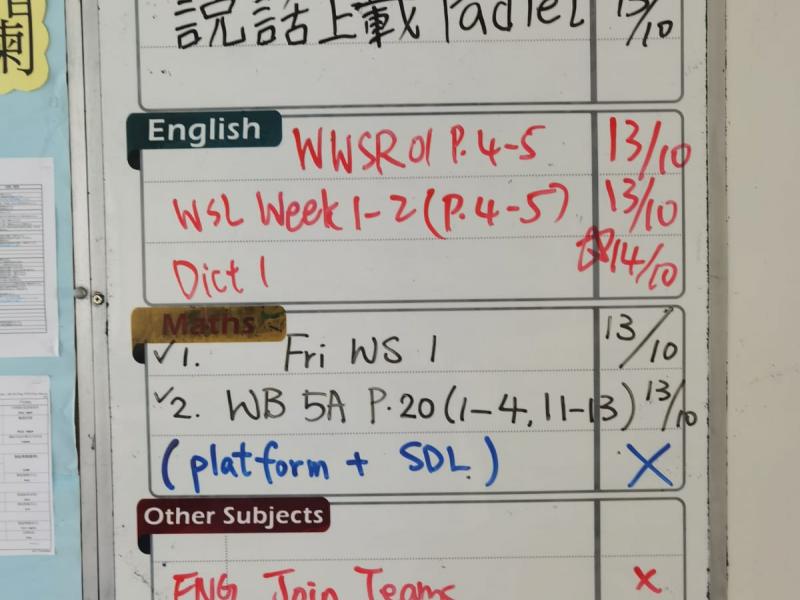 說話上載 Padlet 13/10
English
WWSR01 P.4-5 13/10
WSL Week 1-2 (P.4-5) 13/10
Dict 1 14/10
Maths
✓1. Fri WS 1 13/10
✓2. WB 5A P.20 (1-4, 11-13) 13/10
(platform + SDL) X
Other Subjects
ENG Join Teams x